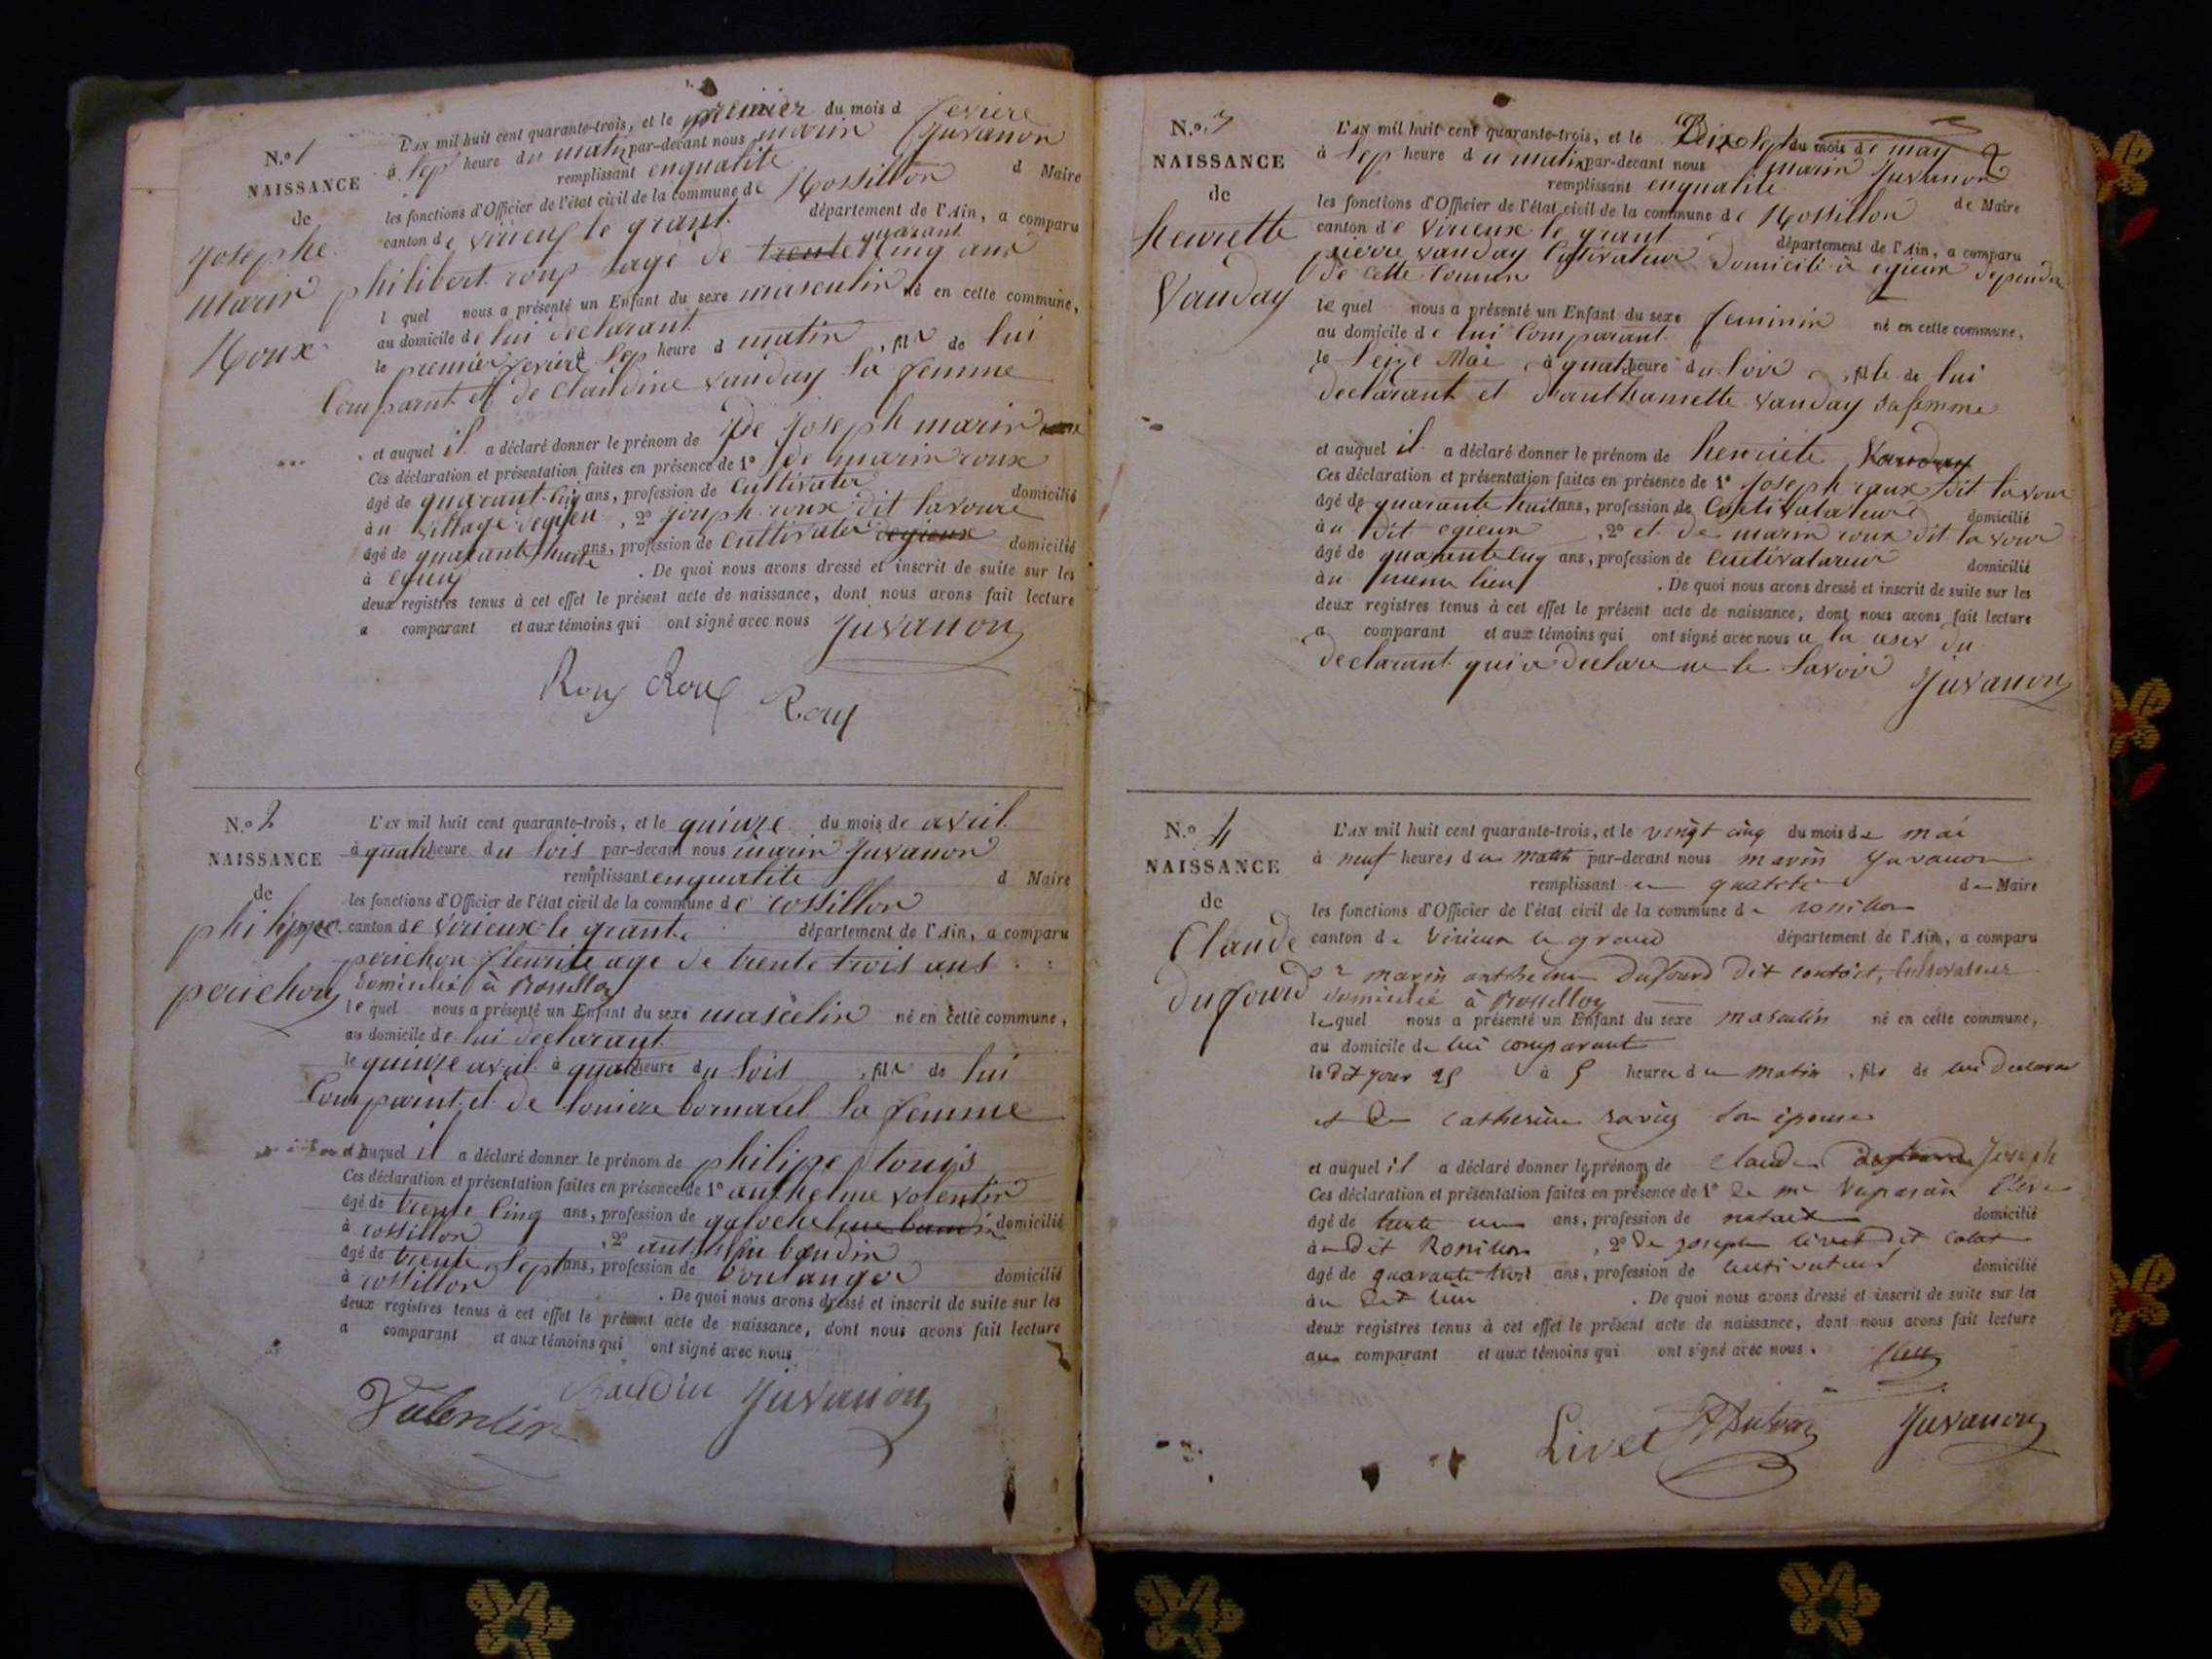 N.º 1
NAISSANCE
de
Josephe
marin
Roux
L'AN mil huit cent quarante-trois, et le premier du mois d fevriere
à sep heure du matin par-devant nous marin Juvanon
remplissant enqualité d Maire
les fonctions d'Officier de l'état civil de la commune de Rossillon
canton de virieux le grant département de l'Ain, a comparu
philibert roux age de trente quarant cinq ans
l quel nous a présenté un Enfant du sexe masculin né en cette commune,
au domicile de lui declarant
le premier fevriere à sep heure d matin, fils de lui
Comparant et de Claudine vanday sa femme
et auquel il a déclaré donner le prénom de de Joseph marin
Ces déclaration et présentation faites en présence de 1º de marin roux
âgé de quarant cinq ans, profession de Cultivater domicilié
à u village degieu, 2º joseph roux dit lavoure
âgé de quarant huite ans, profession de Cultivater domicilié
à egieux. De quoi nous avons dressé et inscrit de suite sur les
deux registres tenus à cet effet le présent acte de naissance, dont nous avons fait lecture
a comparant et aux témoins qui ont signé avec nous Juvanon
Roux Roux Roux
N.º 2
NAISSANCE
de
philippe
perichon
L'AN mil huit cent quarante-trois, et le quinze du mois de avril
à quatre heure du soir par-devant nous marin Juvanon
remplissant enqualité d Maire
les fonctions d'Officier de l'état civil de la commune de rossillon
canton de virieux le grant département de l'Ain, a comparu
perichon fleurite age de trente trois ans
domicilié à Rossillon
le quel nous a présenté un Enfant du sexe masculin né en cette commune,
au domicile de lui declarant
le quinze avril à quatre heure du soir, fils de lui
Comparant et de louise bornarel sa femme
et auquel il a déclaré donner le prénom de philipe louis
Ces déclaration et présentation faites en présence de 1º anthelme valentin
âgé de trente cinq ans, profession de domicilié
à rossillon, 2º baudin
âgé de trente sept ans, profession de boulanger domicilié
à rossillon. De quoi nous avons dressé et inscrit de suite sur les
deux registres tenus à cet effet le présent acte de naissance, dont nous avons fait lecture
a comparant et aux témoins qui ont signé avec nous
Valentin Baudin Juvanon
N.º 3
NAISSANCE
de
henriette
Vanday
L'AN mil huit cent quarante-trois, et le Dix sept du mois de may
à sep heure du matin par-devant nous marin Juvanon
remplissant enqualité de Maire
les fonctions d'Officier de l'état civil de la commune de Rossillon
canton de Virieux le grant département de l'Ain, a comparu
pierre vanday Cultivateur domicilié à egieux dependa
de cette Commun
le quel nous a présenté un Enfant du sexe feminin né en cette commune,
au domicile de lui Comparant
le seize Mai à quatr heure du soir, fille de lui
declarant et danthamette vanday sa femme
et auquel il a déclaré donner le prénom de henriete Vanday
Ces déclaration et présentation faites en présence de 1º Joseph roux dit lavour
âgé de quarante huit ans, profession de Cultivatareur domicilié
à u dit egieux, 2º et de marin roux dit lavour
âgé de quarante cinq ans, profession de Cultivatareur domicilié
à u meme lieu. De quoi nous avons dressé et inscrit de suite sur les
deux registres tenus à cet effet le présent acte de naissance, dont nous avons fait lecture
a comparant et aux témoins qui ont signé avec nous a la du
declarant qui a declare ne le savoir Juvanon
N.º 4
NAISSANCE
de
Claude
Dufourd
L'AN mil huit cent quarante-trois, et le vingt cinq du mois de mai
à neuf heures du matin par-devant nous marin Juvanon
remplissant en qualité de Maire
les fonctions d'Officier de l'état civil de la commune de rossillon
canton de Virieux le grand département de l'Ain, a comparu
sr marin anthelme Dufourd dit contoit, Cultivateur
domicilié à Rossillon
lequel nous a présenté un Enfant du sexe masculin né en cette commune,
au domicile de lui comparant
le dit jour 25 à 5 heures du matin, fils de lui declaran
et de Catherine savey son épouse
et auquel il a déclaré donner le prénom de claude Joseph
Ces déclaration et présentation faites en présence de 1º de mr
âgé de trente un ans, profession de notaire domicilié
à u dit Rossillon, 2º de joseph livet dit colat
âgé de quarante trois ans, profession de cultivateur domicilié
à u dit lieu. De quoi nous avons dressé et inscrit de suite sur les
deux registres tenus à cet effet le présent acte de naissance, dont nous avons fait lecture
au comparant et aux témoins qui ont signé avec nous.
Livet Juvanon